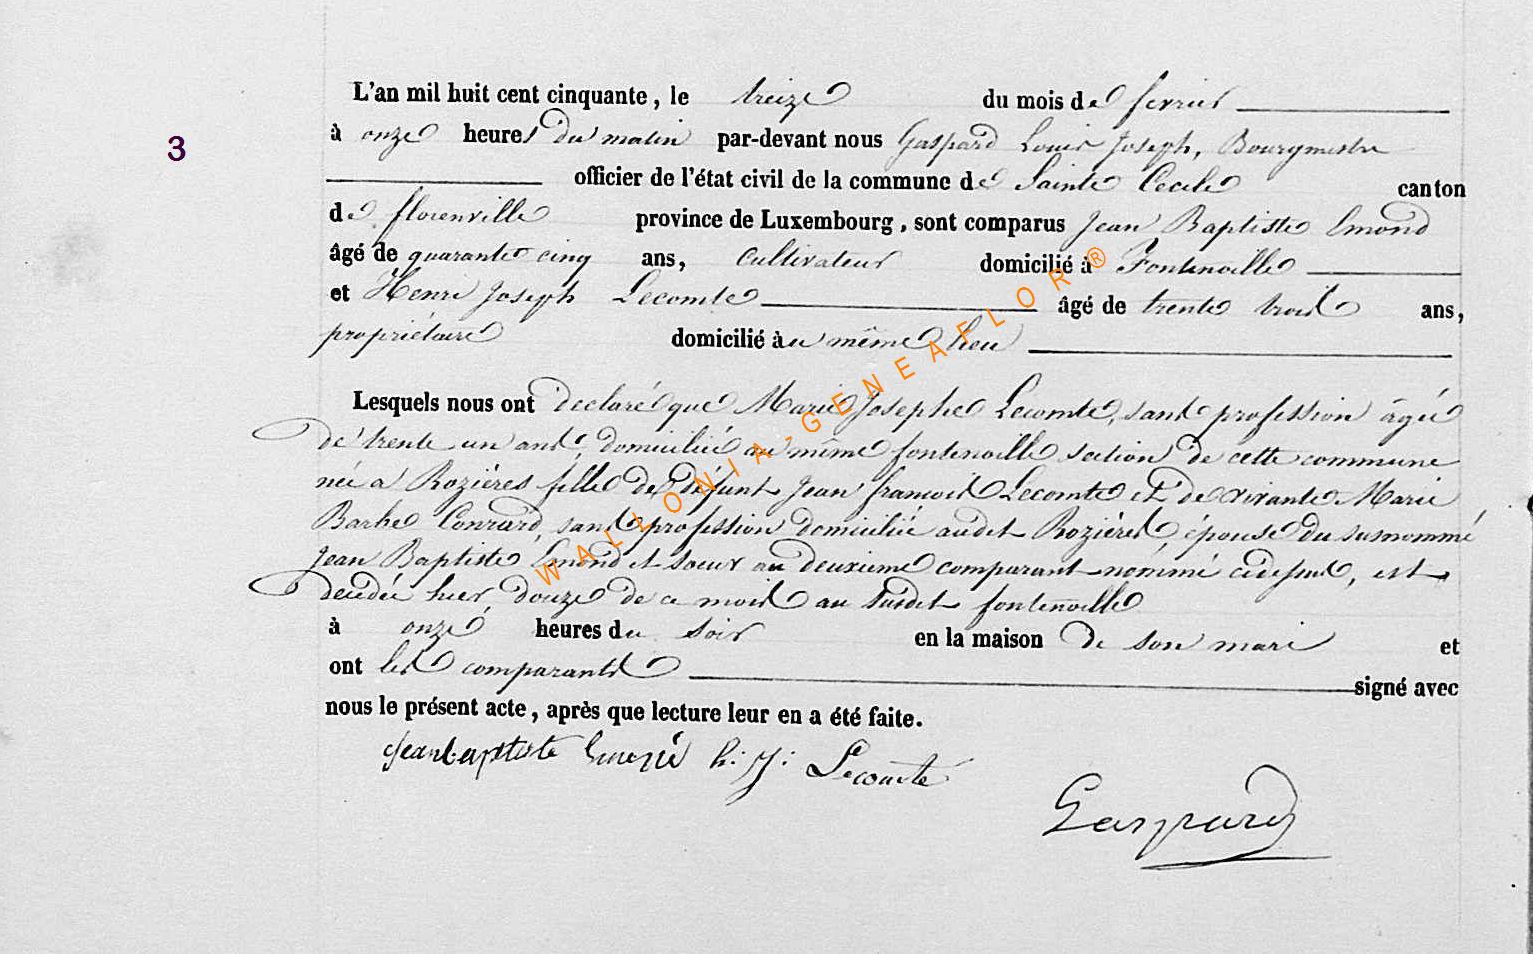 L'an mil huit cent cinquante, le treize du mois de fevrier
à onze heures du matin par-devant nous Gaspard Louis Joseph, Bourgmestre
3
officier de l'état civil de la commune de Sainte Cecile canton
de florenville province de Luxembourg, sont comparus Jean Baptiste Emond
âgé de quarante cinq ans, Cultivateur domicilié à Fontenoille
et Henri Joseph Lecomte âgé de trente trois ans,
propriétaire domicilié au même lieu
Lesquels nous ont declaré que Marie Josephe Lecomte, sans profession âgée
de trente un ans, domiciliée au même fontenoille section de cette commune
née a Rozières fille de défunt Jean francois Lecomte et de vivante Marie
Barbe Conrard, sans profession domiciliée audit Rozières, épouse du surnommé
Jean Baptiste Emond et soeur au deuxieme comparant nommé cidessus, est
decédée hier, douze de ce mois au susdit fontenoille
à onze heures du soir en la maison de son mari et
ont les comparants signé avec
nous le présent acte, après que lecture leur en a été faite.
Jean baptiste h. J. Lecomte
Gaspard
WALLONIA-GENEAFLOR®